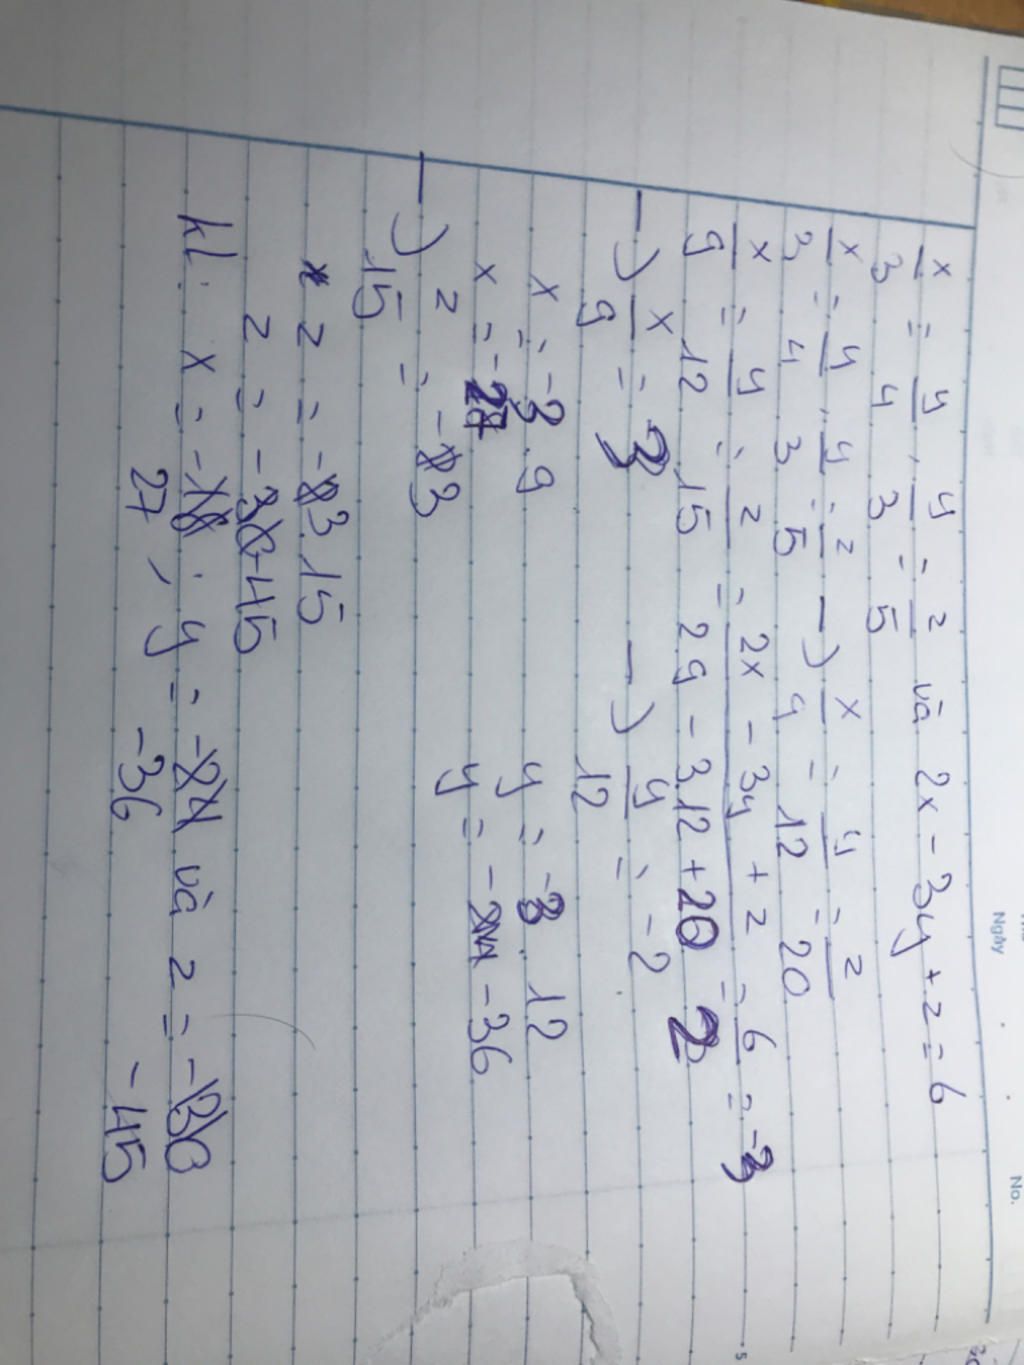 No.
Ngày
x/3 = y/4 , y/3 = z/5 và 2x - 3y + z = 6
x/3 = y/4 , y/3 = z/5 → x/9 = y/12 = z/20
x/9 = y/12 = z/15 = 2x - 3y + z / 2.9 - 3.12 + 20 = 6/2 = -3
→ x/9 = 3 → y/12 = -2
x = -3.9 y = -3.12
x = -27 y = -36
→ z/15 = -3
z = -3.15
z = -45
kl: x = - 27 , y = -36 và z = -45